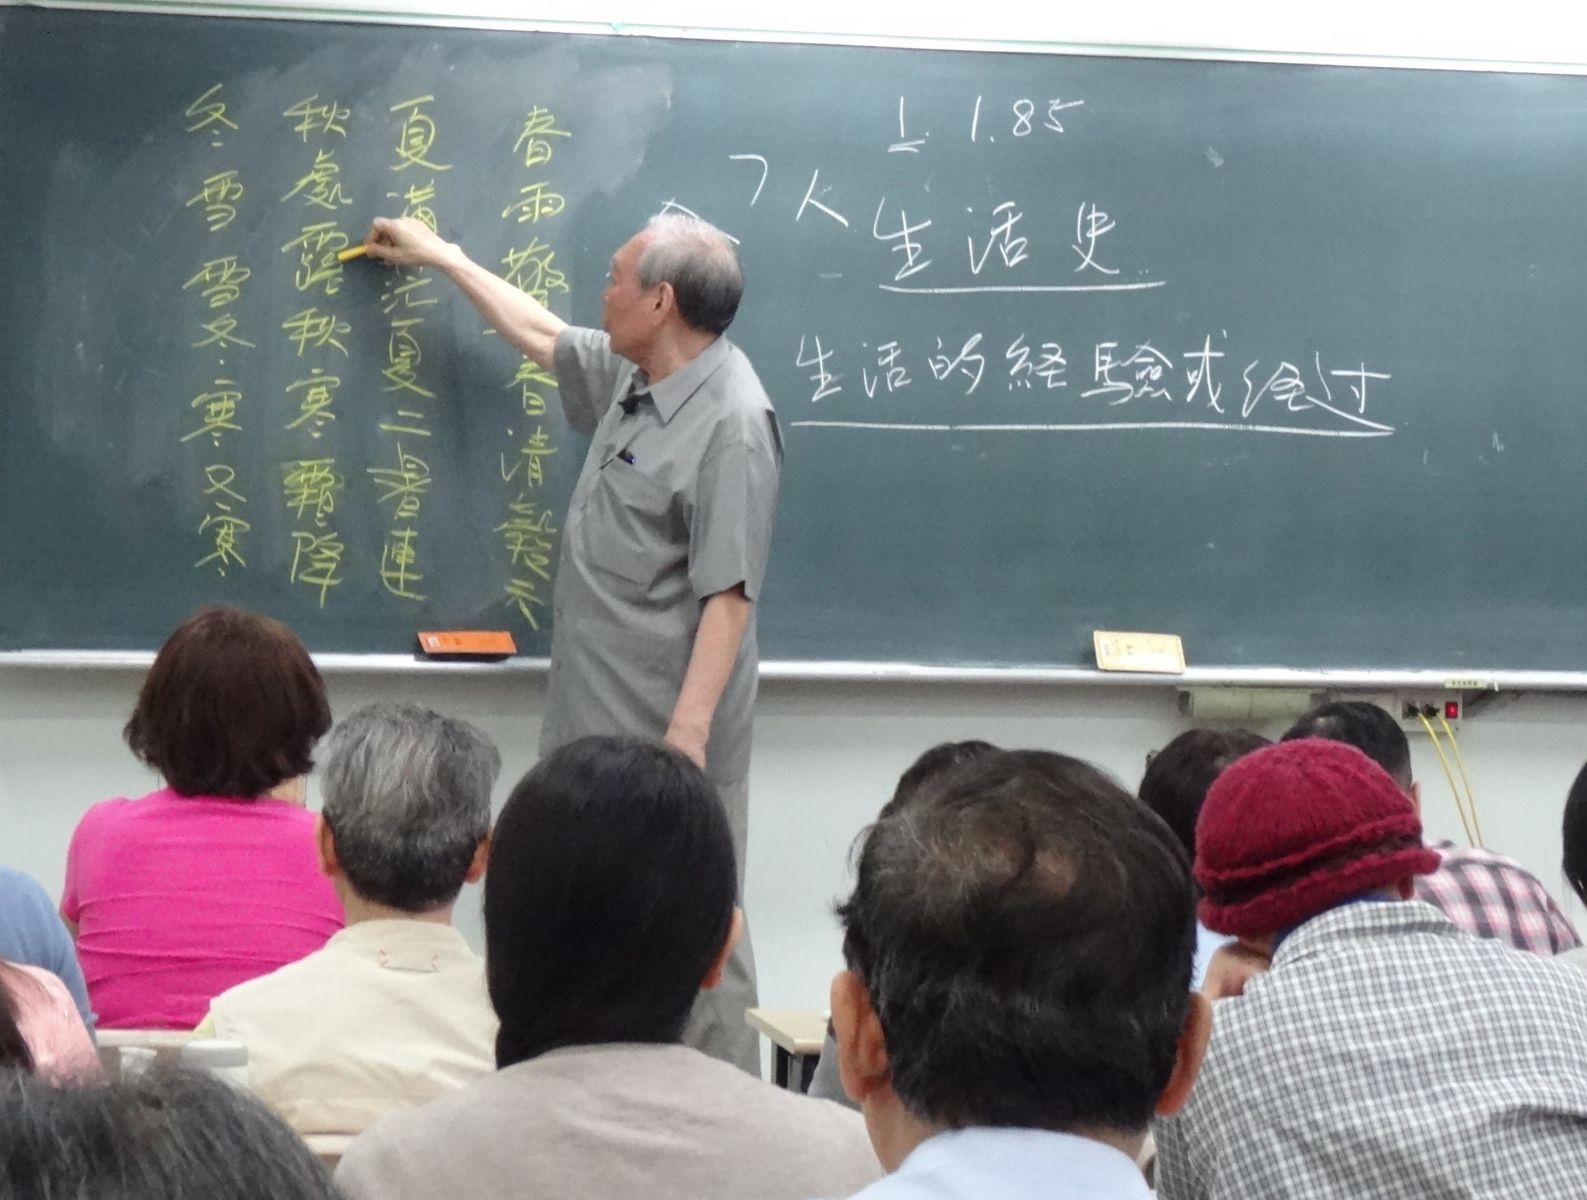 春雨驚春清穀天
夏滿芒夏二暑連
秋處露秋寒霜降
冬雪雪冬寒又寒
1. 1.85
生活史
生活的経驗或经过